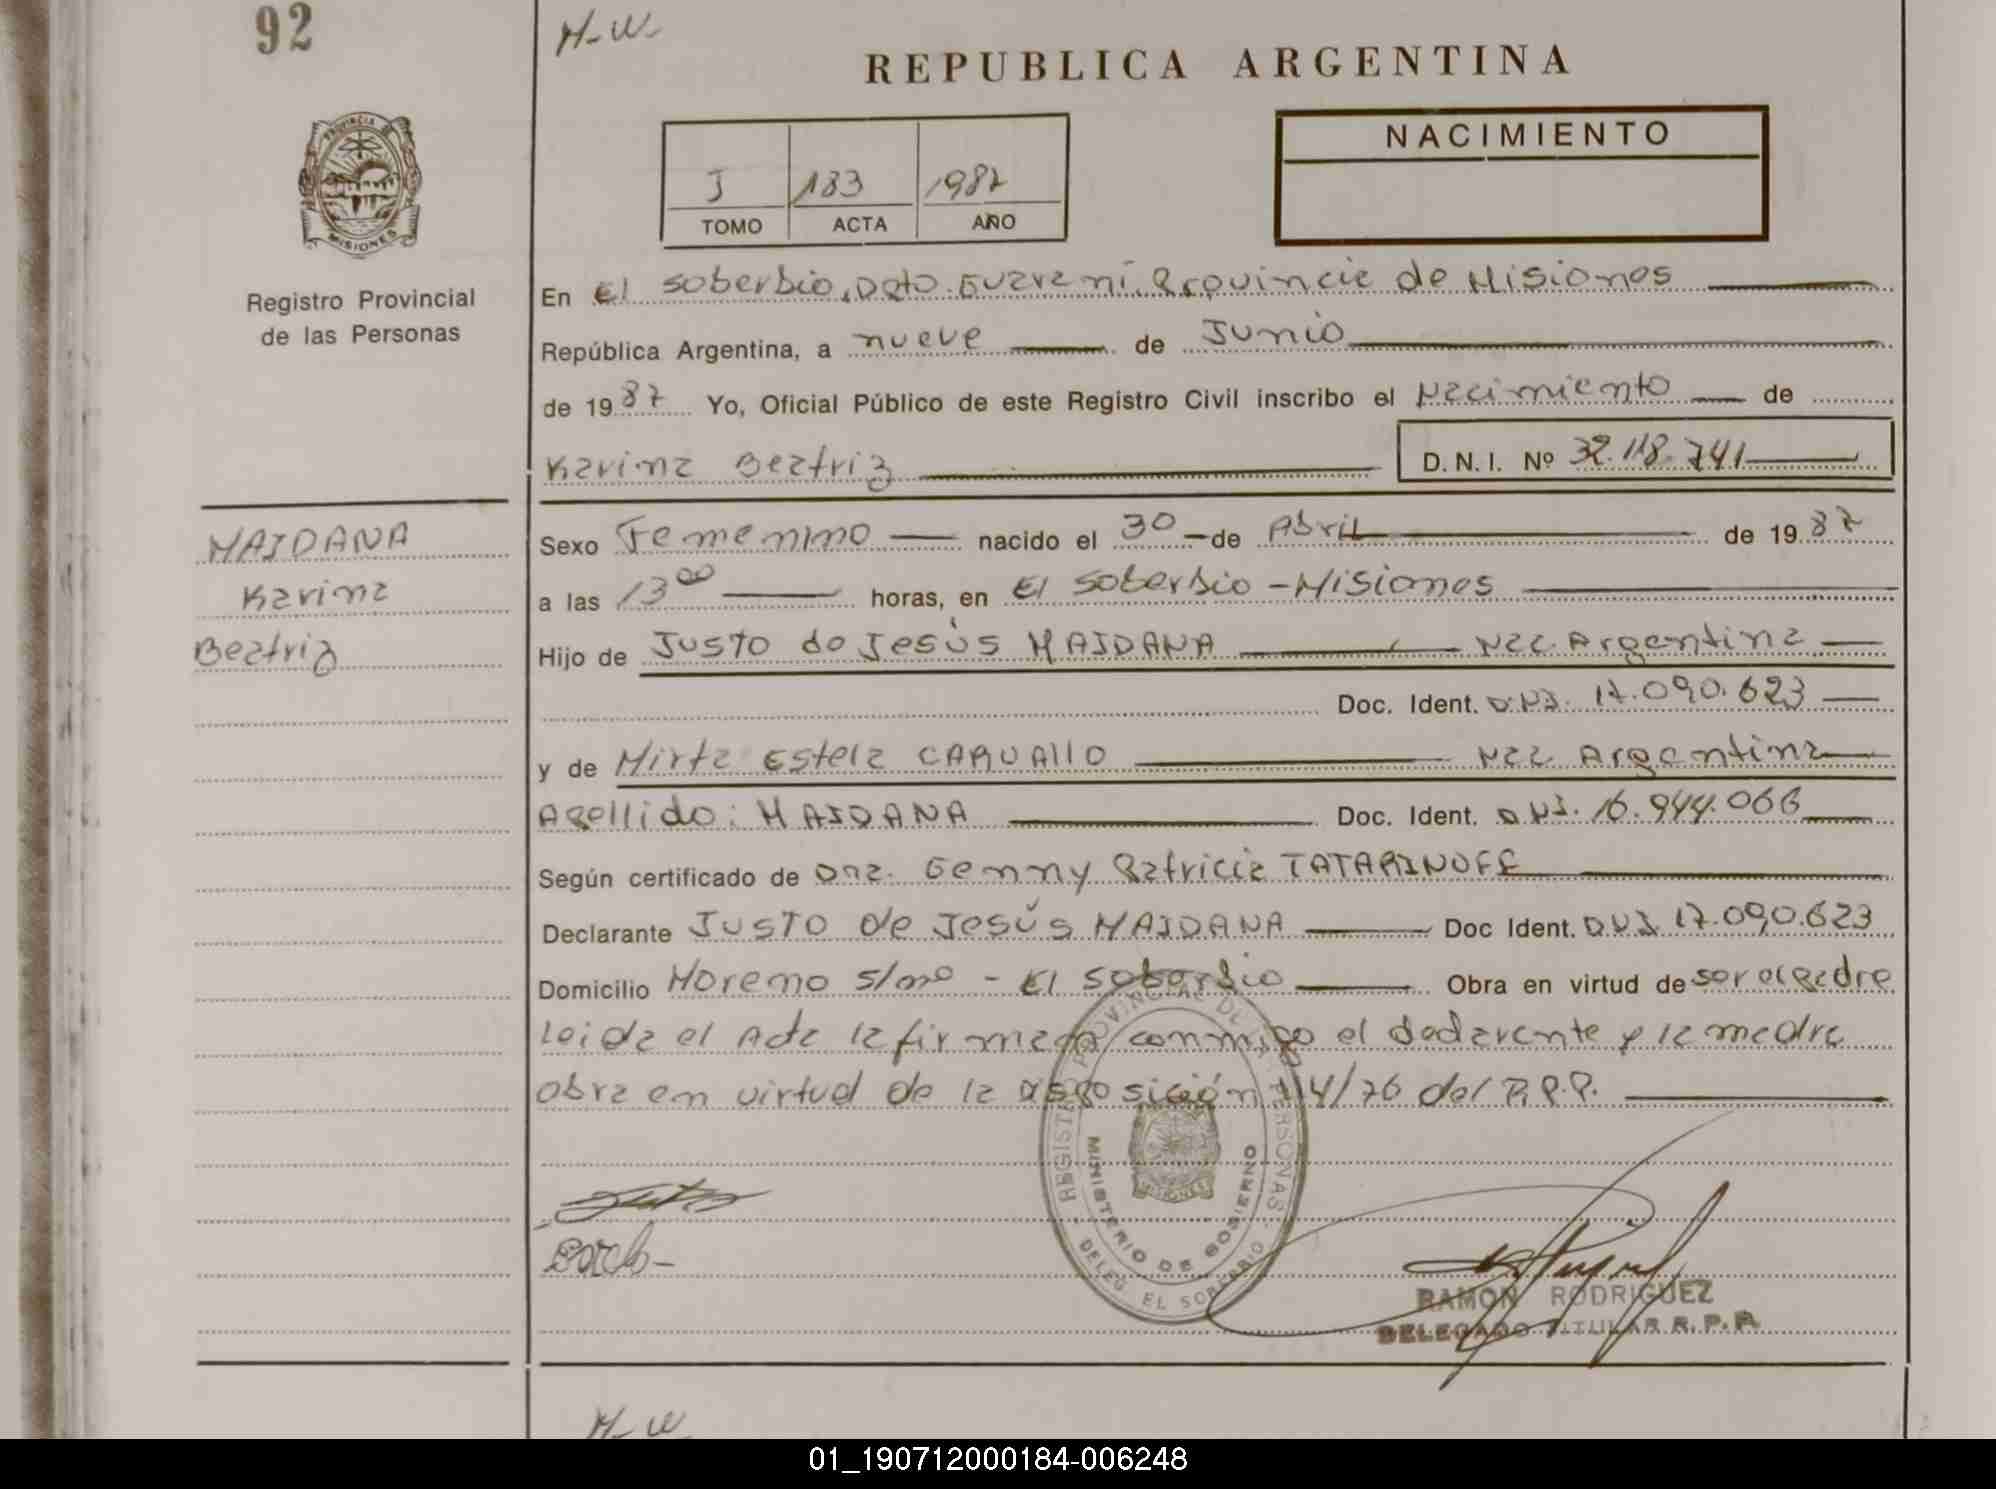 92
H-W-
REPUBLICA ARGENTINA
PROVINCIA DE
MISIONES
Registro Provincial
de las Personas
I 183 1987
TOMO ACTA AÑO
NACIMIENTO
En El Soberbio, Dpto. Guarani, Provincia de Misiones
República Argentina, a nueve de Junio
de 1987 Yo, Oficial Público de este Registro Civil inscribo el Nacimiento de
Karina Beatriz D.N.I. Nº 32.118.741
MAIDANA
Karina
Beatriz
Sexo Femenino nacido el 30 de Abril de 1987
a las 13 00 horas, en El Soberbio - Misiones
Hijo de Justo de Jesús MAIDANA Nac. Argentina
Doc. Ident. DNI. 17.090.623
y de Mirta Estela CARVALLO Nac Argentina
Apellido: MAIDANA Doc. Ident. DNI. 16.944.066
Según certificado de Dra. Genny Patricia TATARINOFF
Declarante Justo de Jesús MAIDANA Doc Ident. DNI 17.090.623
Domicilio Moreno s/nº - El Soberbio Obra en virtud de ser el padre
leida el Acta la firman conmigo el declarante y la madre
obra en virtud de la disposición 114/76 del R.P.P.
REGISTRO PROVINCIAL DE LAS PERSONAS
MINISTERIO DE GOBIERNO
MISIONES
DELEG. EL SOBERBIO
RAMON RODRIGUEZ
DELEGADO TITULAR R.P.P.
H-W
01_190712000184-006248